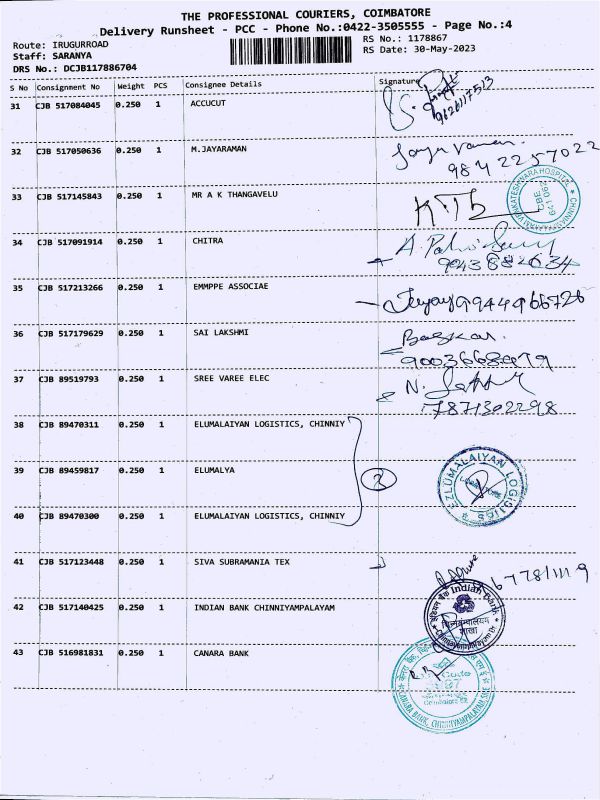 THE PROFESSIONAL COURIERS, COIMBATORE
Delivery Runsheet - PCC - Phone No.:0422-3505555 - Page No.:4
Route: IRUGURROAD
Staff: SARANYA
DRS No.: DCJB117886704
RS No.: 1178867
RS Date: 30-May-2023
S No Consignment No Weight PCS Consignee Details Signature
31 CJB 517084045 0.250 1 ACCUCUT
9626117513
32 CJB 517050636 0.250 1 M.JAYARAMAN
9842257022
33 CJB 517145843 0.250 1 MR A K THANGAVELU
34 CJB 517091914 0.250 1 CHITRA
35 CJB 517213266 0.250 1 EMMPPE ASSOCIAE
9944966726
36 CJB 517179629 0.250 1 SAI LAKSHMI
Baskar.
37 CJB 89519793 0.250 1 SREE VAREE ELEC
7871302298
38 CJB 89470311 0.250 1 ELUMALAIYAN LOGISTICS, CHINNIY
39 CJB 89459817 0.250 1 ELUMALYA
EZLUMALAIYAN LOGISTICS
40 CJB 89470300 0.250 1 ELUMALAIYAN LOGISTICS, CHINNIY
41 CJB 517123448 0.250 1 SIVA SUBRAMANIA TEX
42 CJB 517140425 0.250 1 INDIAN BANK CHINNIYAMPALAYAM
Indian Bank
शाखा
43 CJB 516981831 0.250 1 CANARA BANK
CANARA BANK, CHINNIYAMPALAYAM